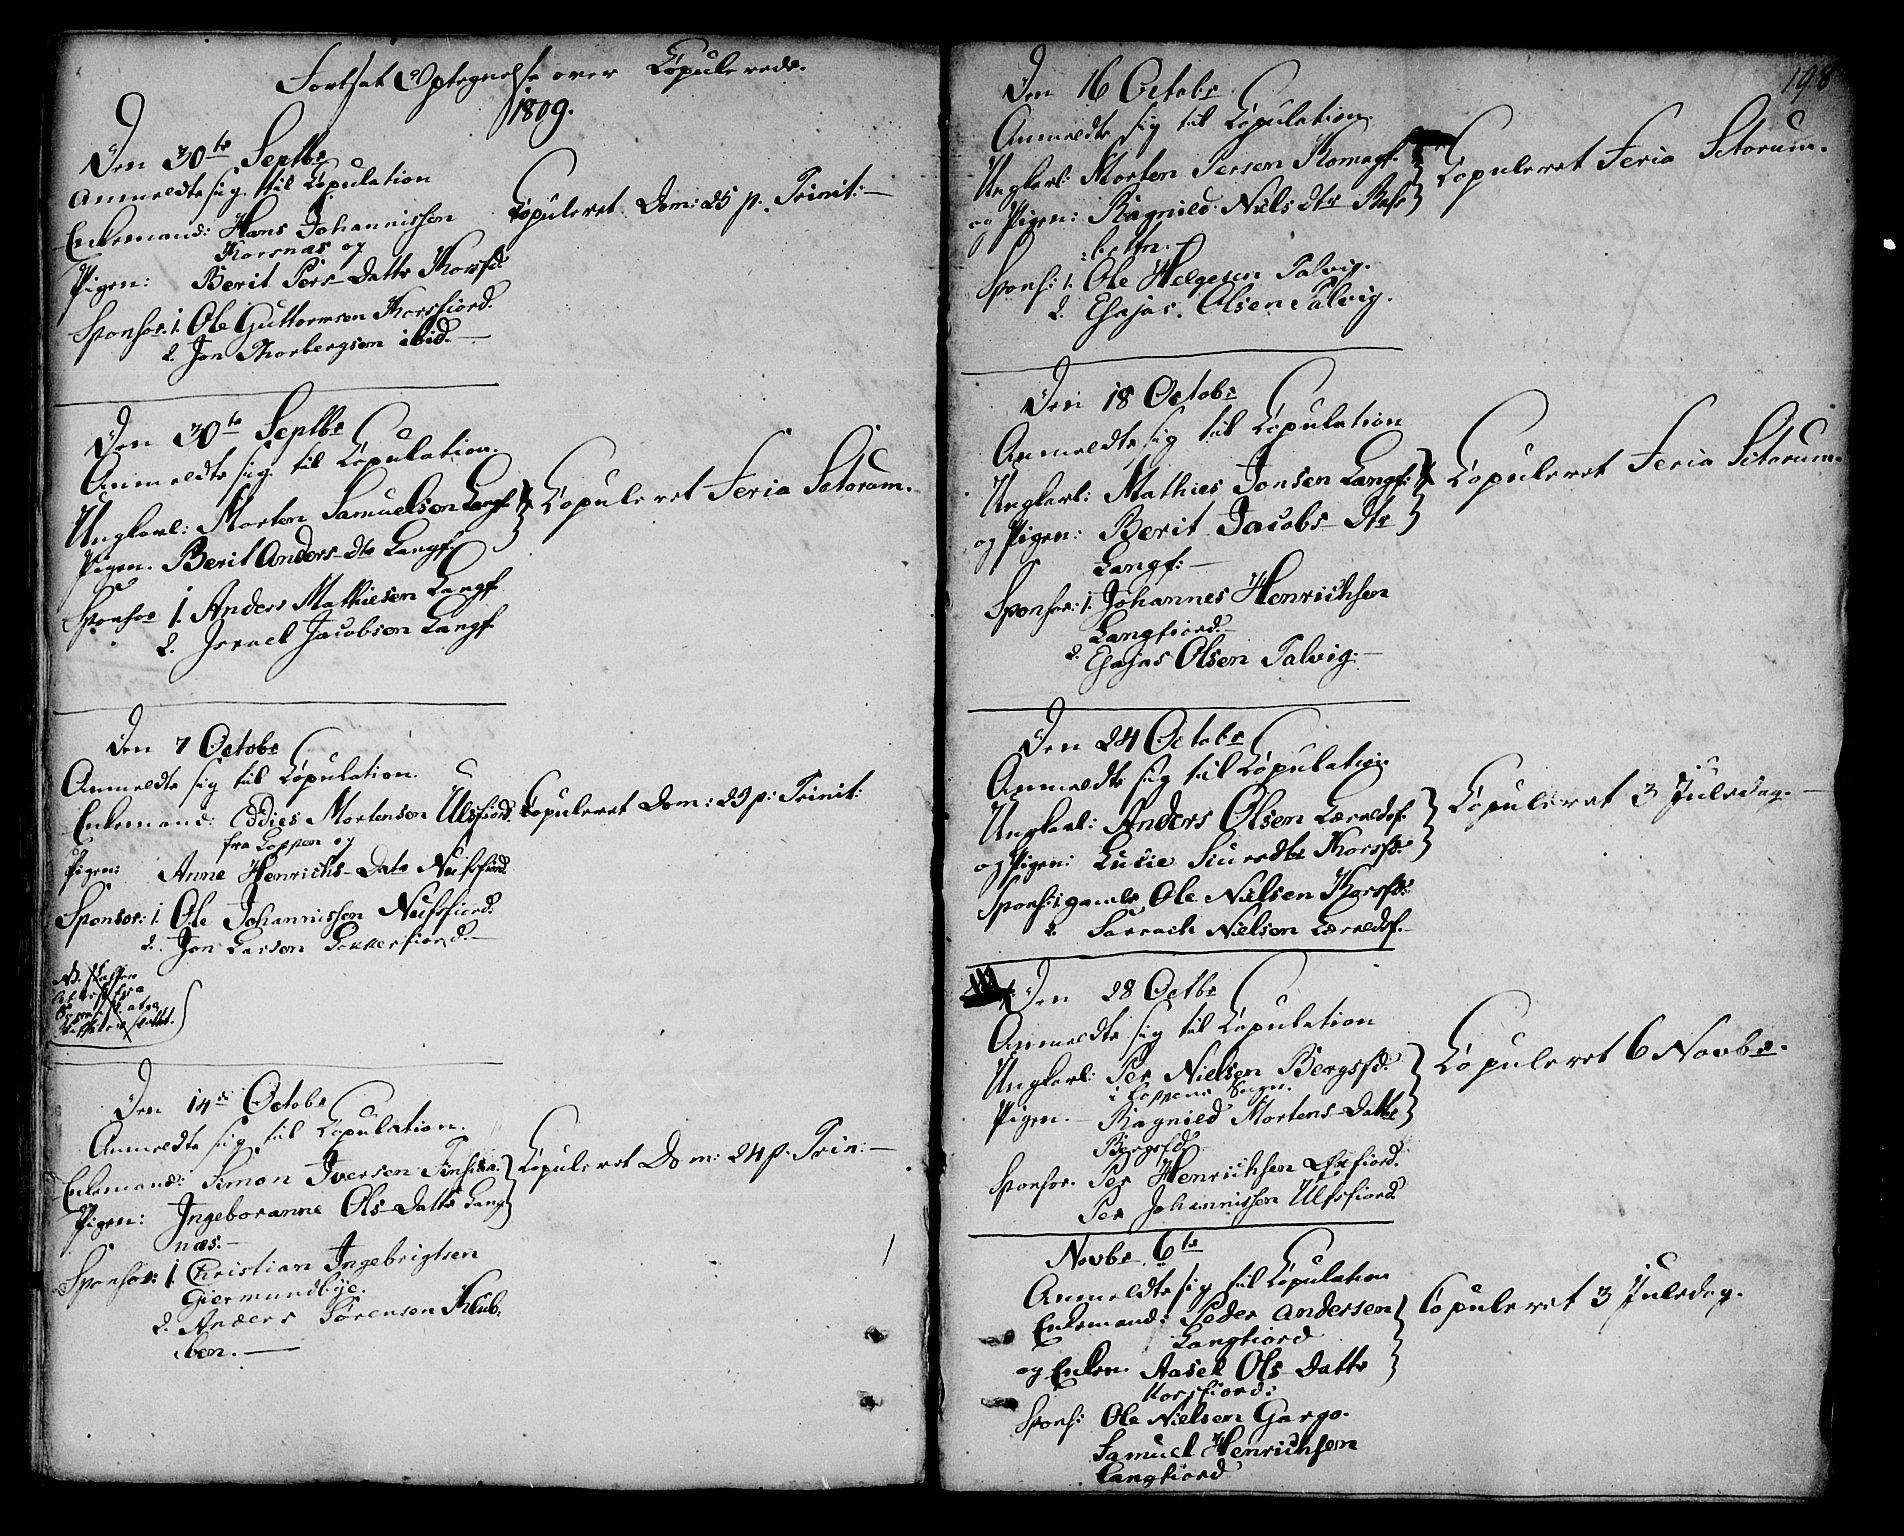 Fortsat Optegnelse over Copulerede.
1809.
Den 30te Septbr
Anmeldte sig til Copulation
Enkemand: Hans Johannissen
Korsnæs og
Pigen: Berit Pers-Datter Korsfd:
Sponsor: 1. Ole Guttormsen Korsfiord.
2. Jon Thorbergsen ibid.—
Copuleret Dom: 25 p. Trinit:—
Den 30te Septbr
Anmeldte sig til Copulation.
Ungkarl: Morten Samuelsen Langf:
Pigen. Berit Anders-dtr Langf.
Sponsor 1. Anders Mathiesen Langf
2. Israel Jacobsen Langf.
Copuleret Feria Sctorum.
Den 7 Octobr
Anmeldte sig til Copulation.
Enkemand: Eddies Mortensen Ulsfiord.
fra Loppen og
Pigen: Anne Henrichs-Datr Neusfiord
Sponsor: 1 Ole Johannissen Neusfiord.
2. Jon Larsen Jokkerfiord.—
Copuleret Dom: 23 p: Trinit:
NB.
Den 14de Octobr
Anmeldte sig til Copulation.
Enkemand: Simon Iversen
Pigen: Ingeboranne Ols-Datter Lang
næs.—
Sponsor: 1. Christian Ingebrigtsen
Giermundbye.
2. Anders Sørensen Klub.
ben.—
Copuleret Dom: 24 p. Trin:—
198
Den 16 Octobr
Anmeldte sig til Copulation.
Ungkarl: Morten Persen Komagf.
og Pigen: Ragnild Niels dtr Rafs
:botten.—
Spons: 1. Ole Helgesen Talvig.
2. Esajas. Olsen Talvig.
Copuleret Feria Sctorum.
Den 18 Octobr
Anmeldte sig til Copulation
Ungkarl: Mathies Jonsen Langf:
og Pigen: Berit Jacobs-Dtr
Langf:—
Sponsor: 1. Johannes Henrichsen
Langfiord.—
2. Esajas Olsen Talvig.—
Copuleret Feria Sctorum.
Den 24 Octobr
Anmeldte sig til Copulation
Ungkarl: Anders Olsen Lærredsf.
og Pigen: Lucie Siursdtr Korsfd:
Spons: 1. gamle Ole Nielsen Korsfd:
2. Sarrach Nielsen Lærredsf.—
Copuleret 3 Juledag.—
Den 28 Octbr
Anmeldte sig til Copulation
Ungkarl: Per Nielsen Bergsfd:
i Loppens Sogn.
Pigen.— Ragnild Mortens-Datter
Bergsfd:
Sponsor. Per Henrichsen Øxfiord.
Per Johannissen Ulfsfiord.
Copuleret 6 Novbr.
Novbr 6te
Anmeldte sig til Copulation
Enkemand: Peder Andersen
Langfiord
og Enken. Aasel Ols-Datter
Korsfiord:
Spons: Ole Nielsen Gargo.
Samuel Henrichsen
Langfiord
Copuleret 3 Juledag.